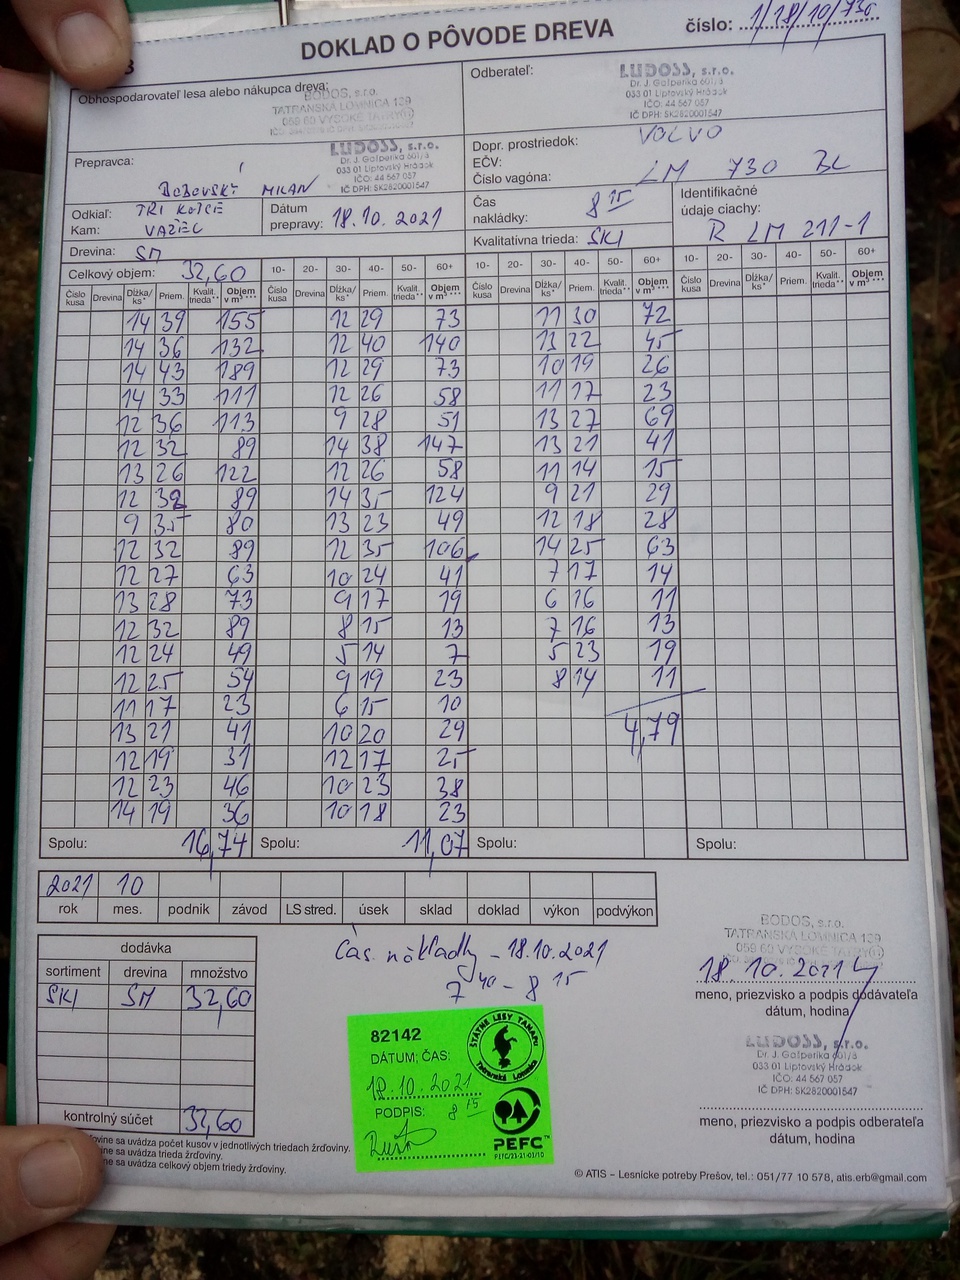 DOKLAD O PÔVODE DREVA
číslo: 1/18/10/730
Obhospodarovateľ lesa alebo nákupca dreva:
BODOS, s.r.o.
TATRANSKÁ LOMNICA 129
059 60 VYSOKÉ TATRY
Odberateľ:
LUDOSS, s.r.o.
Dr. J. Gašperíka 601/8
033 01 Liptovský Hrádok
IČO: 44 567 057
IČ DPH: SK2820001547
Prepravca:
MILAN
LUDOSS, s.r.o.
Dr. J. Gašperíka 601/8
033 01 Liptovský Hrádok
IČO: 44 567 057
IČ DPH: SK2820001547
Dopr. prostriedok: VOLVO
EČV: LM 730 BL
Číslo vagóna:
Odkiaľ: TRI KOPCE
Kam: VAŽEC
Dátum prepravy: 18.10.2021
Čas nakládky: 8 15
Identifikačné údaje ciachy:
R LM 211-1
Drevina: SM
Kvalitatívna trieda: SKI
Celkový objem: 32,60
10- 20- 30- 40- 50- 60+ 10- 20- 30- 40- 50- 60+ 10- 20- 30- 40- 50- 60+
Číslo kusa Drevina Dĺžka/ks* Priem. Kvalit. trieda** Objem v m³*** Číslo kusa Drevina Dĺžka/ks* Priem. Kvalit. trieda** Objem v m³*** Číslo kusa Drevina Dĺžka/ks* Priem. Kvalit. trieda** Objem v m³*** Číslo kusa Drevina Dĺžka/ks* Priem. Kvalit. trieda** Objem v m³***
14 39 155 12 29 73 11 30 72
14 36 132 12 40 140 13 22 45
14 43 189 12 29 73 10 19 26
14 33 111 12 26 58 11 17 23
12 36 113 9 28 51 13 27 69
12 32 89 14 38 147 13 21 41
13 26 122 12 26 58 11 14 15
12 32 89 14 35 124 9 21 29
9 35 80 13 23 49 12 18 28
12 32 89 12 35 106 14 25 63
12 27 63 10 24 41 7 17 14
13 28 73 9 17 19 6 16 11
12 32 89 8 15 13 7 16 13
12 24 49 5 14 7 5 23 19
12 25 54 9 19 23 8 14 11
11 17 23 6 15 10
13 21 41 10 20 29 4,79
12 19 31 12 17 25
12 23 46 10 23 38
14 19 36 10 18 23
Spolu: 16,74 Spolu: 11,07 Spolu: Spolu:
2021 10
rok mes. podnik závod LS stred. úsek sklad doklad výkon podvýkon
dodávka
sortiment drevina množstvo
SKI SM 32,60
kontrolný súčet 32,60
Čas nákladky - 18.10.2021
7 40 - 8 15
82142
DÁTUM; ČAS:
18.10.2021
8 15
PODPIS:
ŠTÁTNE LESY TANAPu
Tatranská Lomnica
PEFC™
BODOS, s.r.o.
TATRANSKÁ LOMNICA 129
059 60 VYSOKÉ TATRY
18.10.2021
meno, priezvisko a podpis dodávateľa
dátum, hodina
LUDOSS, s.r.o.
Dr. J. Gašperíka 601/8
033 01 Liptovský Hrádok
IČO: 44 567 057
IČ DPH: SK2820001547
meno, priezvisko a podpis odberateľa
dátum, hodina
sa uvádza počet kusov v jednotlivých triedach žrďoviny.
sa uvádza trieda žrďoviny.
sa uvádza celkový objem triedy žrďoviny.
© ATIS – Lesnícke potreby Prešov, tel.: 051/77 10 578, atis.erb@gmail.com